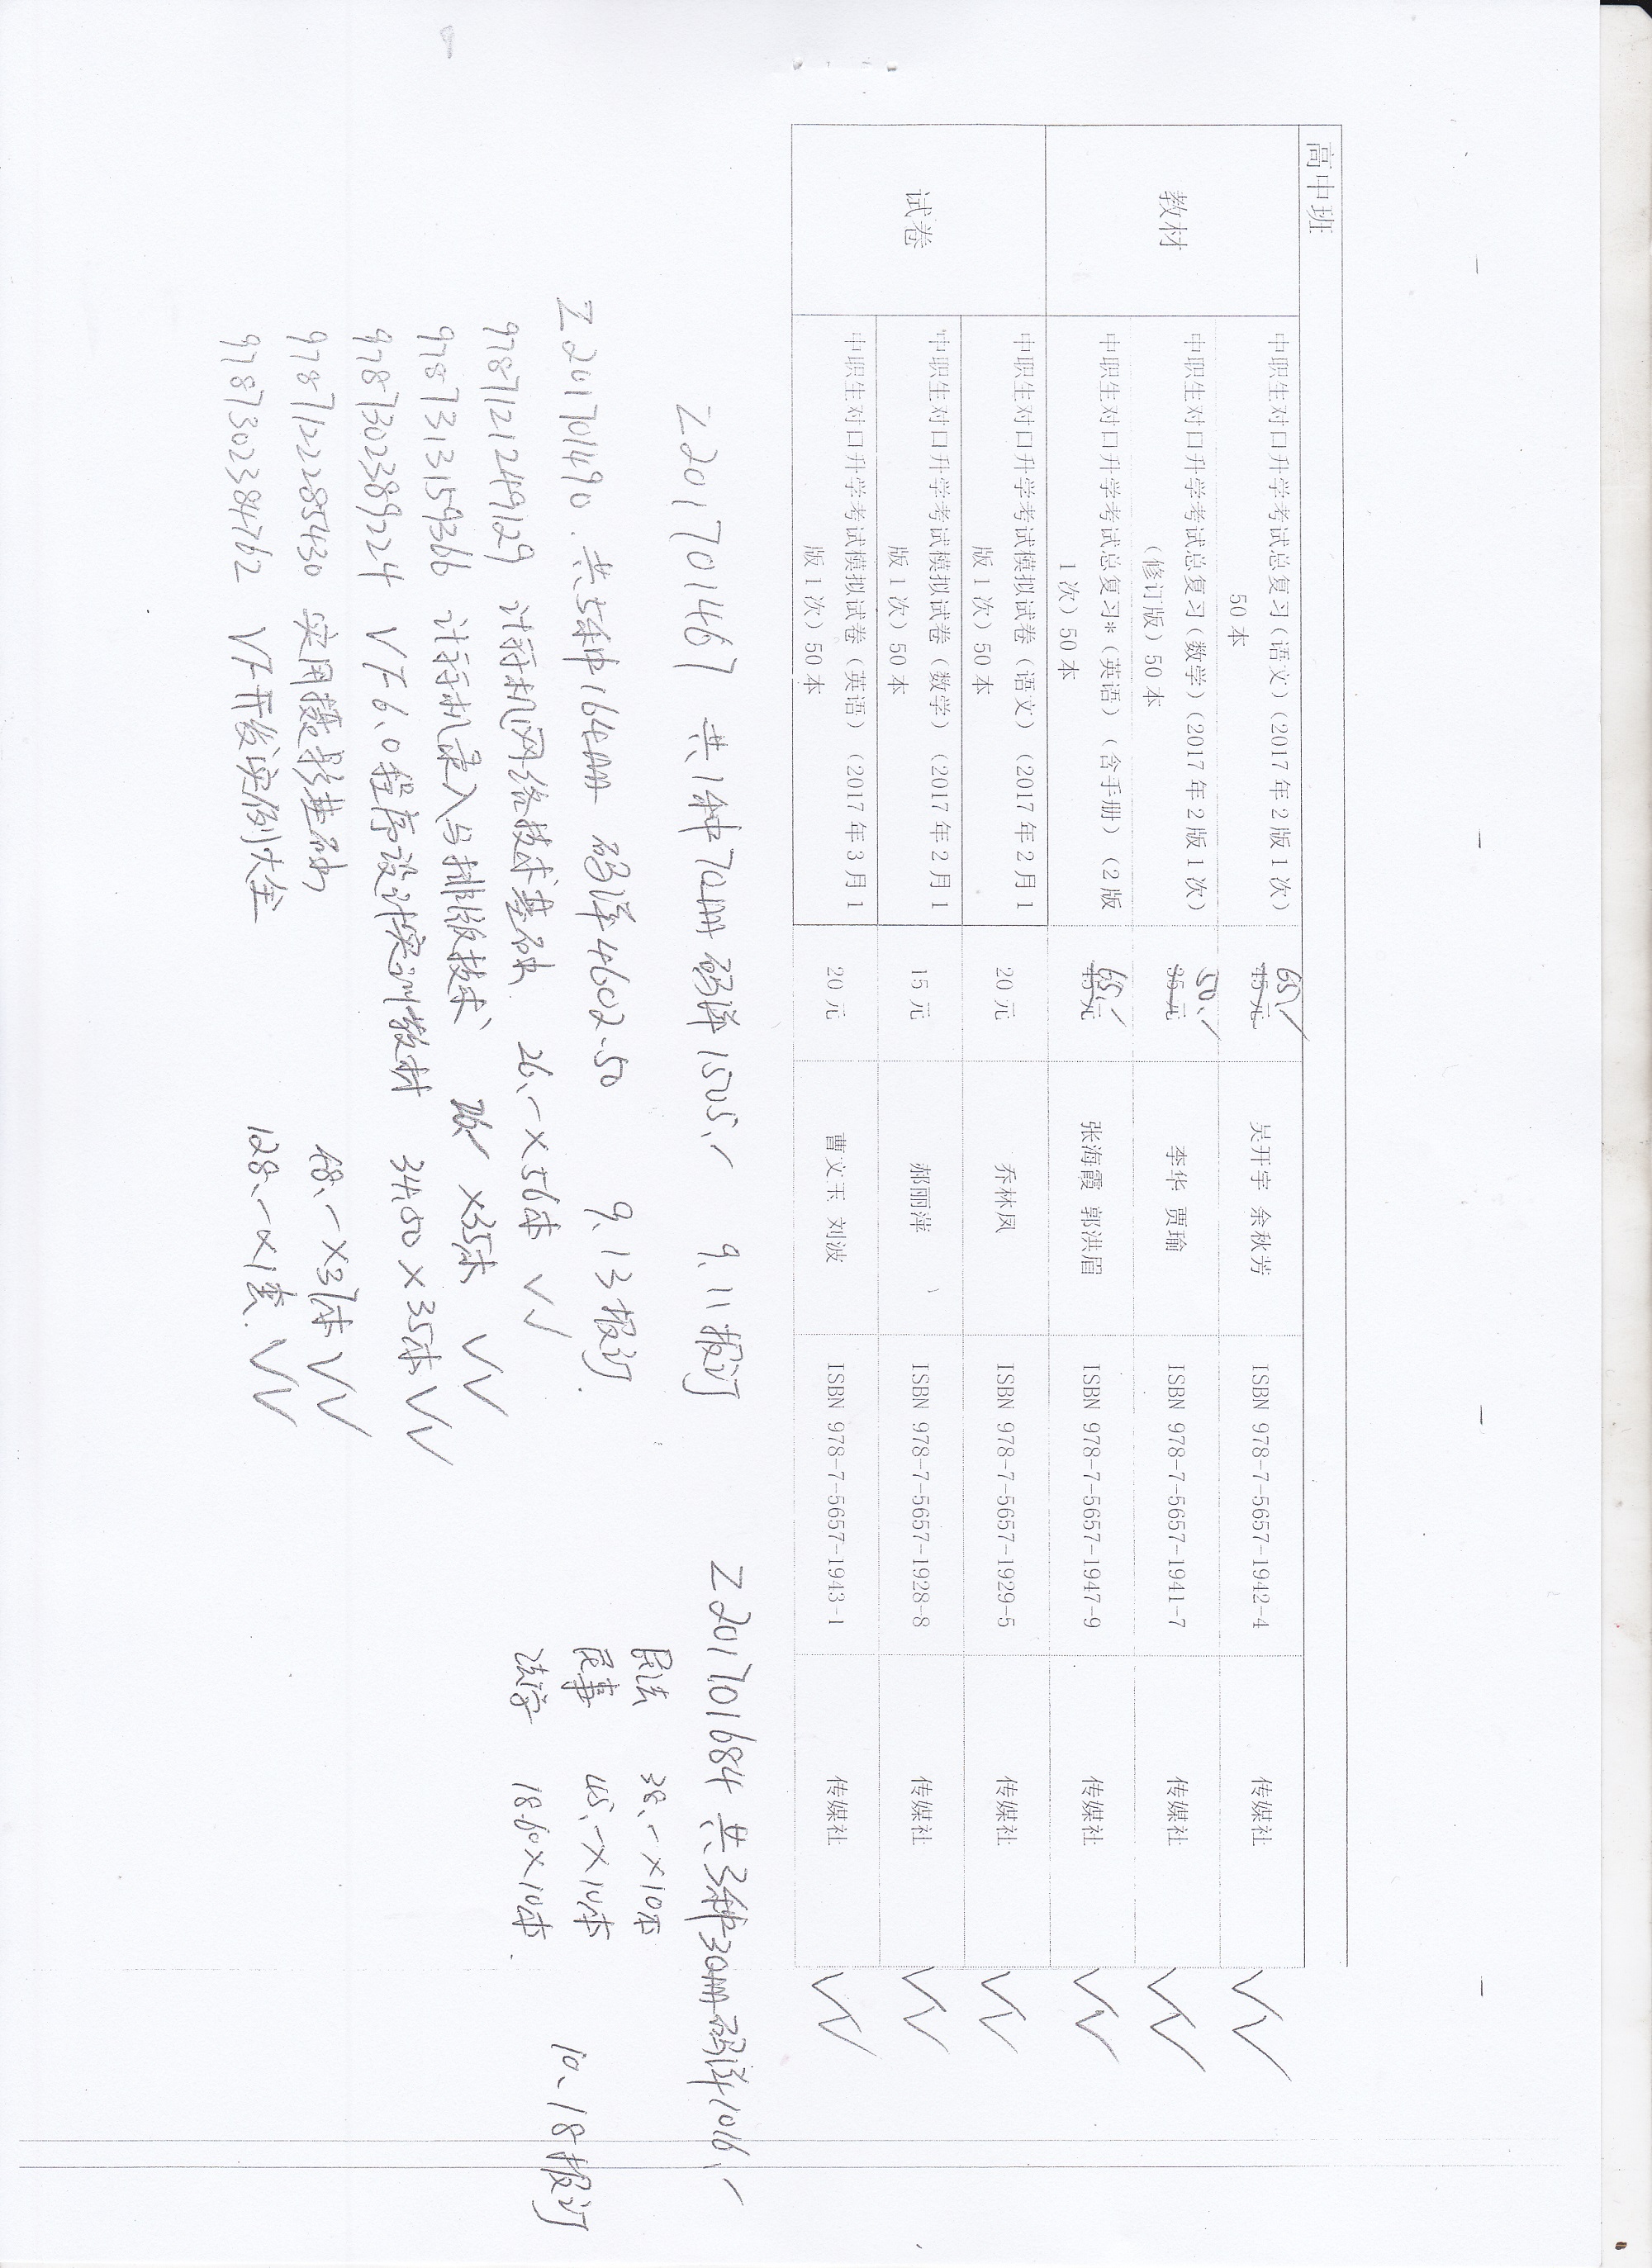 高中班
教材
中职生对口升学考试总复习（语文）（2017 年 2 版 1 次）
50 本
65、
45 元
吴开宇 余秋芳
ISBN 978-7-5657-1942-4
传媒社
中职生对口升学考试总复习（数学）（2017 年 2 版 1 次）
（修订版）50 本
50、
35 元
李华 贾瑜
ISBN 978-7-5657-1941-7
传媒社
中职生对口升学考试总复习*（英语）（含手册）（2 版
1 次）50 本
65、
45 元
张海霞 郭洪眉
ISBN 978-7-5657-1947-9
传媒社
试卷
中职生对口升学考试模拟试卷（语文）（2017 年 2 月 1
版 1 次）50 本
20 元
乔林凤
ISBN 978-7-5657-1929-5
传媒社
中职生对口升学考试模拟试卷（数学）（2017 年 2 月 1
版 1 次）50 本
15 元
郝丽萍
ISBN 978-7-5657-1928-8
传媒社
中职生对口升学考试模拟试卷（英语）（2017 年 3 月 1
版 1 次）50 本
20 元
曹文玉 刘波
ISBN 978-7-5657-1943-1
传媒社
Z201701467 共1种70册 码洋1505、- 9.11报订
Z201701490.共5种164册 码洋4602.50 9.13报订.
9787121249129 计算机网络技术基础 26.-×56本
9787313159366 计算机录入与排版技术 26、×35本
9787302389224 VF6.0程序设计实训教材 34.50×35本
9787122285430 实用摄影基础 48.-×37本
9787302384762 VF开发实例大全 128.-×1套.
Z201701684 共3种30册 码洋1016、-
民法 38.-×10本
民事 45.-×10本
法学 18.60×10本.
10、18报订